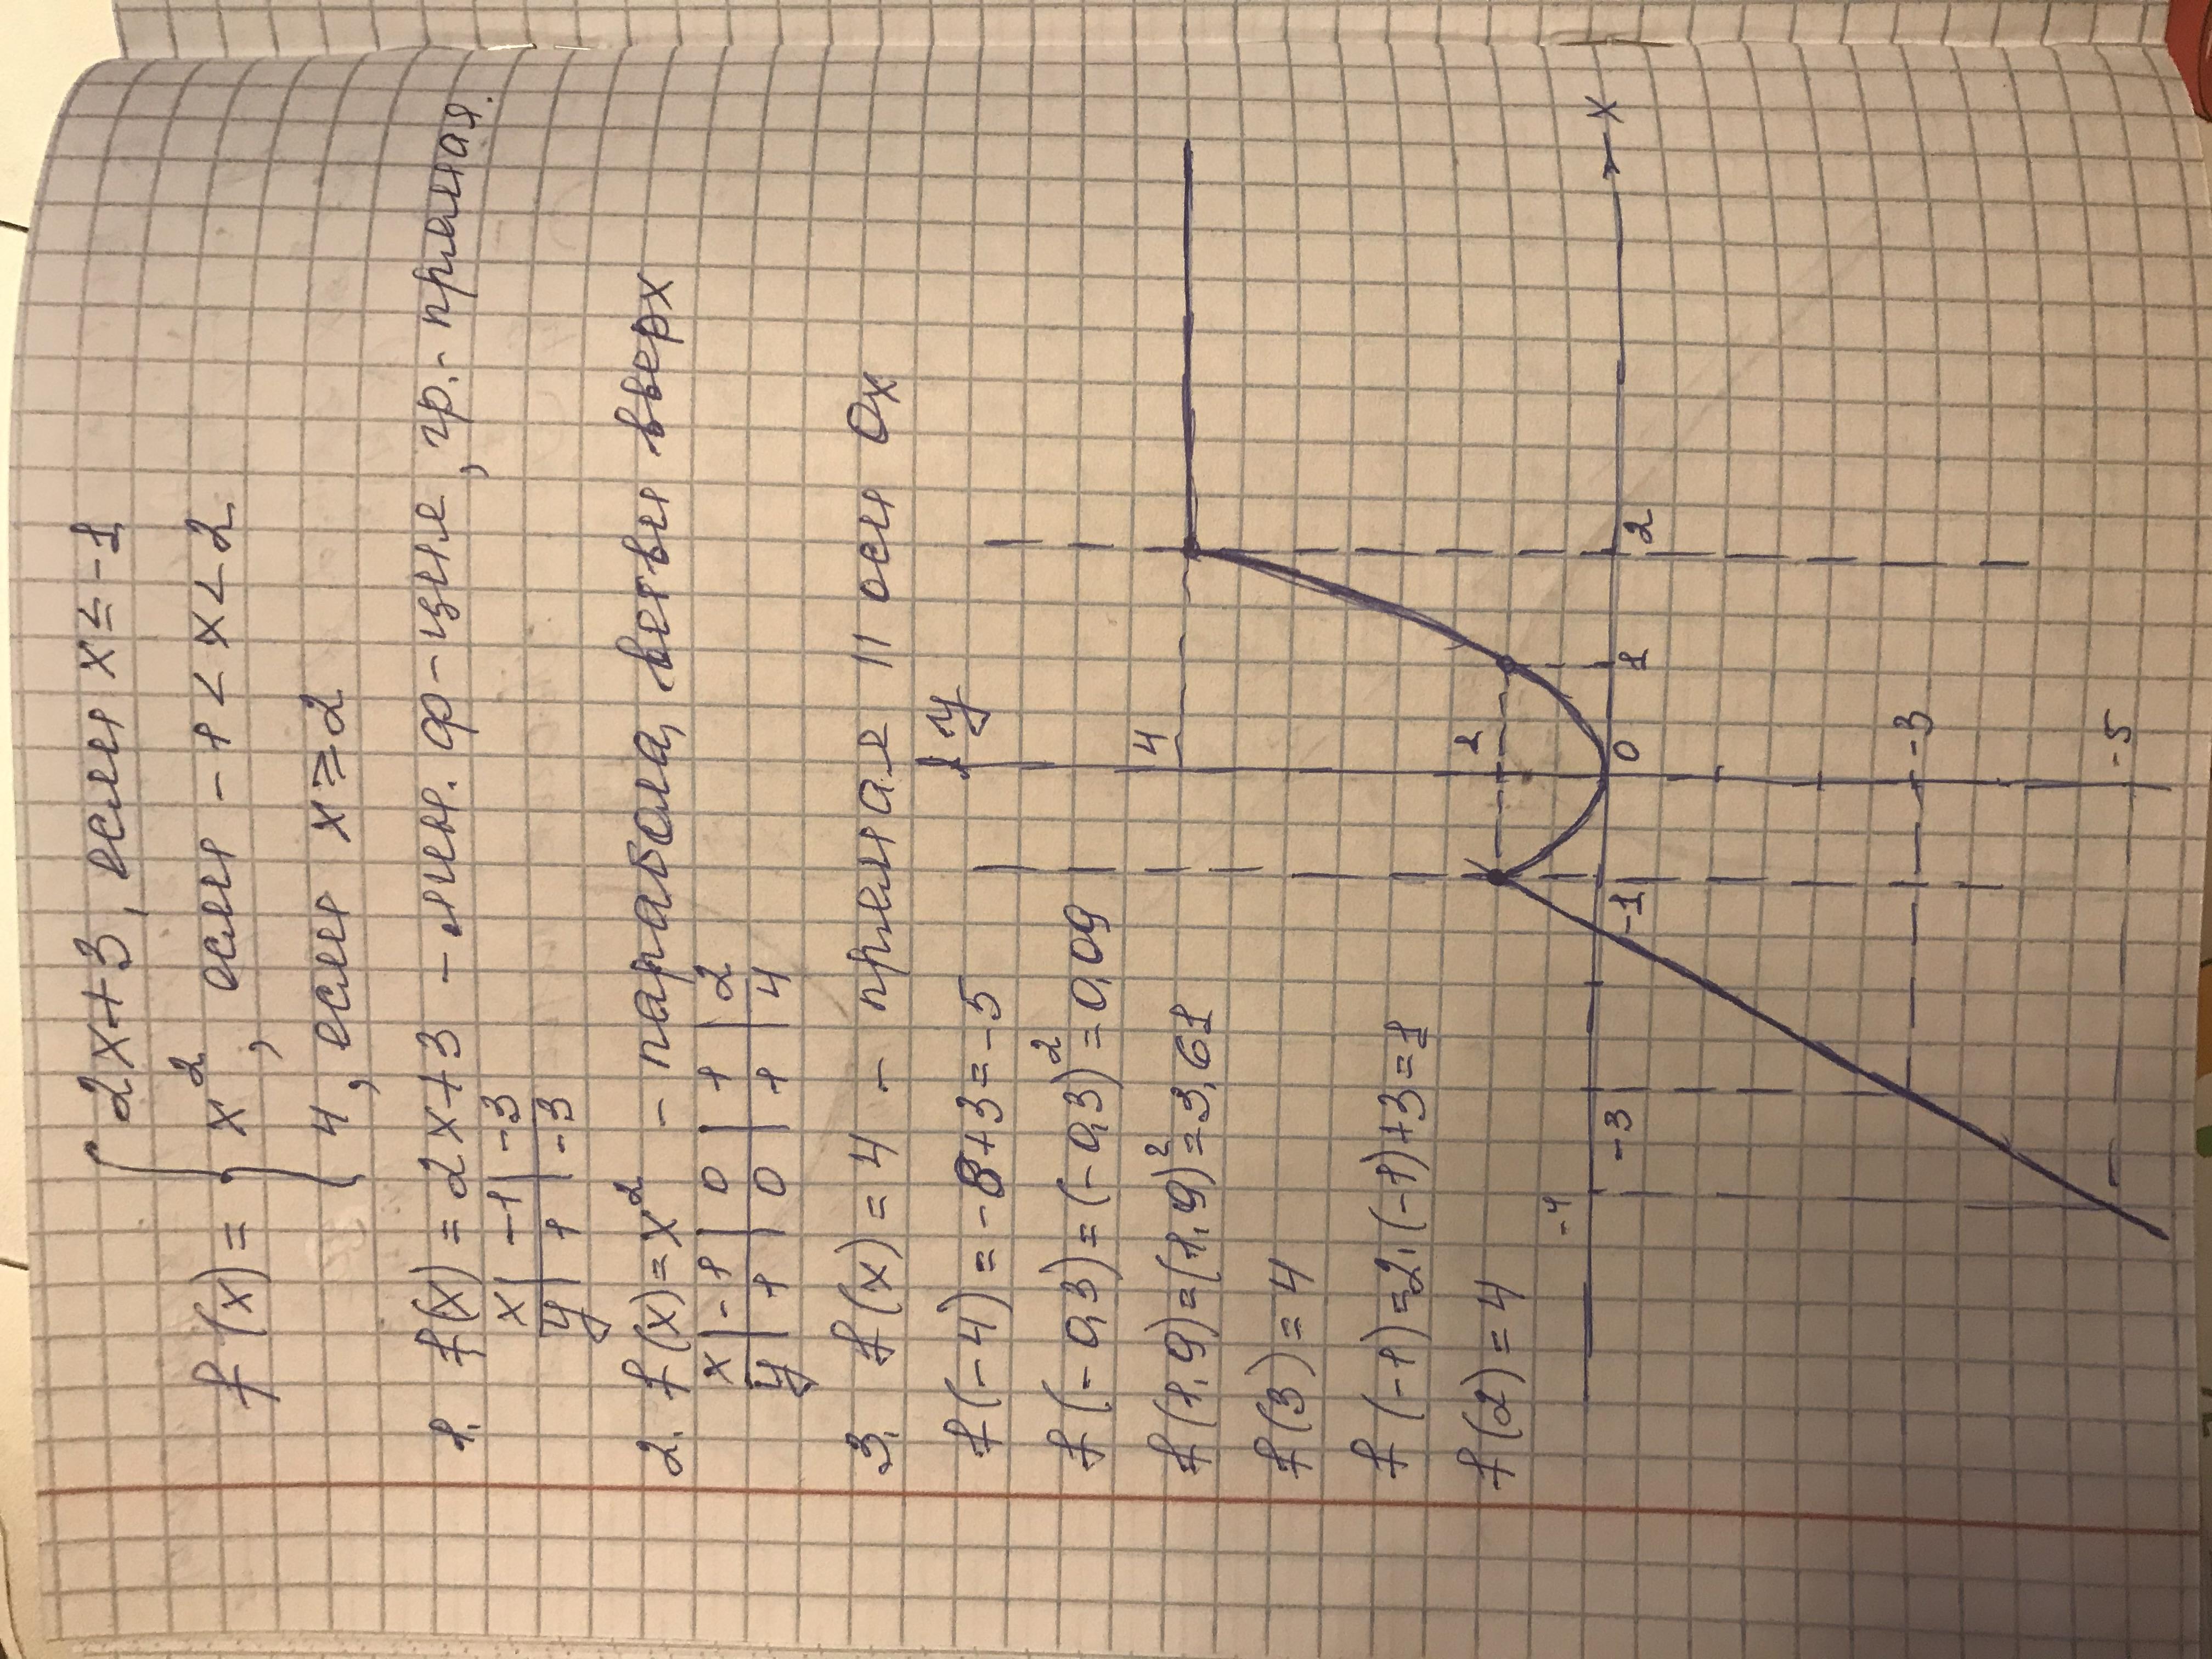 f(x) = { 2x+3, если x ≤ -1
x², если -1 < x < 2
4, если x ≥ 2
1. f(x) = 2x+3 - лин. ф-ция, гр.- прямая.
x | -1 | -3
y | 1 | -3
2. f(x) = x² - парабола, ветви вверх
x | -1 | 0 | 1 | 2
y | 1 | 0 | 1 | 4
3. f(x) = 4 - прямая || оси Ox
f(-4) = -8+3 = -5
f(-0,3) = (-0,3)² = 0,09
f(1,9) = (1,9)² = 3,61
f(3) = 4
f(-1) = 2·(-1)+3 = 1
f(2) = 4
y
4
1
-4 -3 -1 0 1 2 x
-3
-5